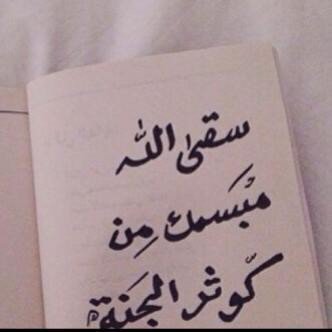 سقىٰ الله
مبْسَمك مِن
كّوثر الجَنة